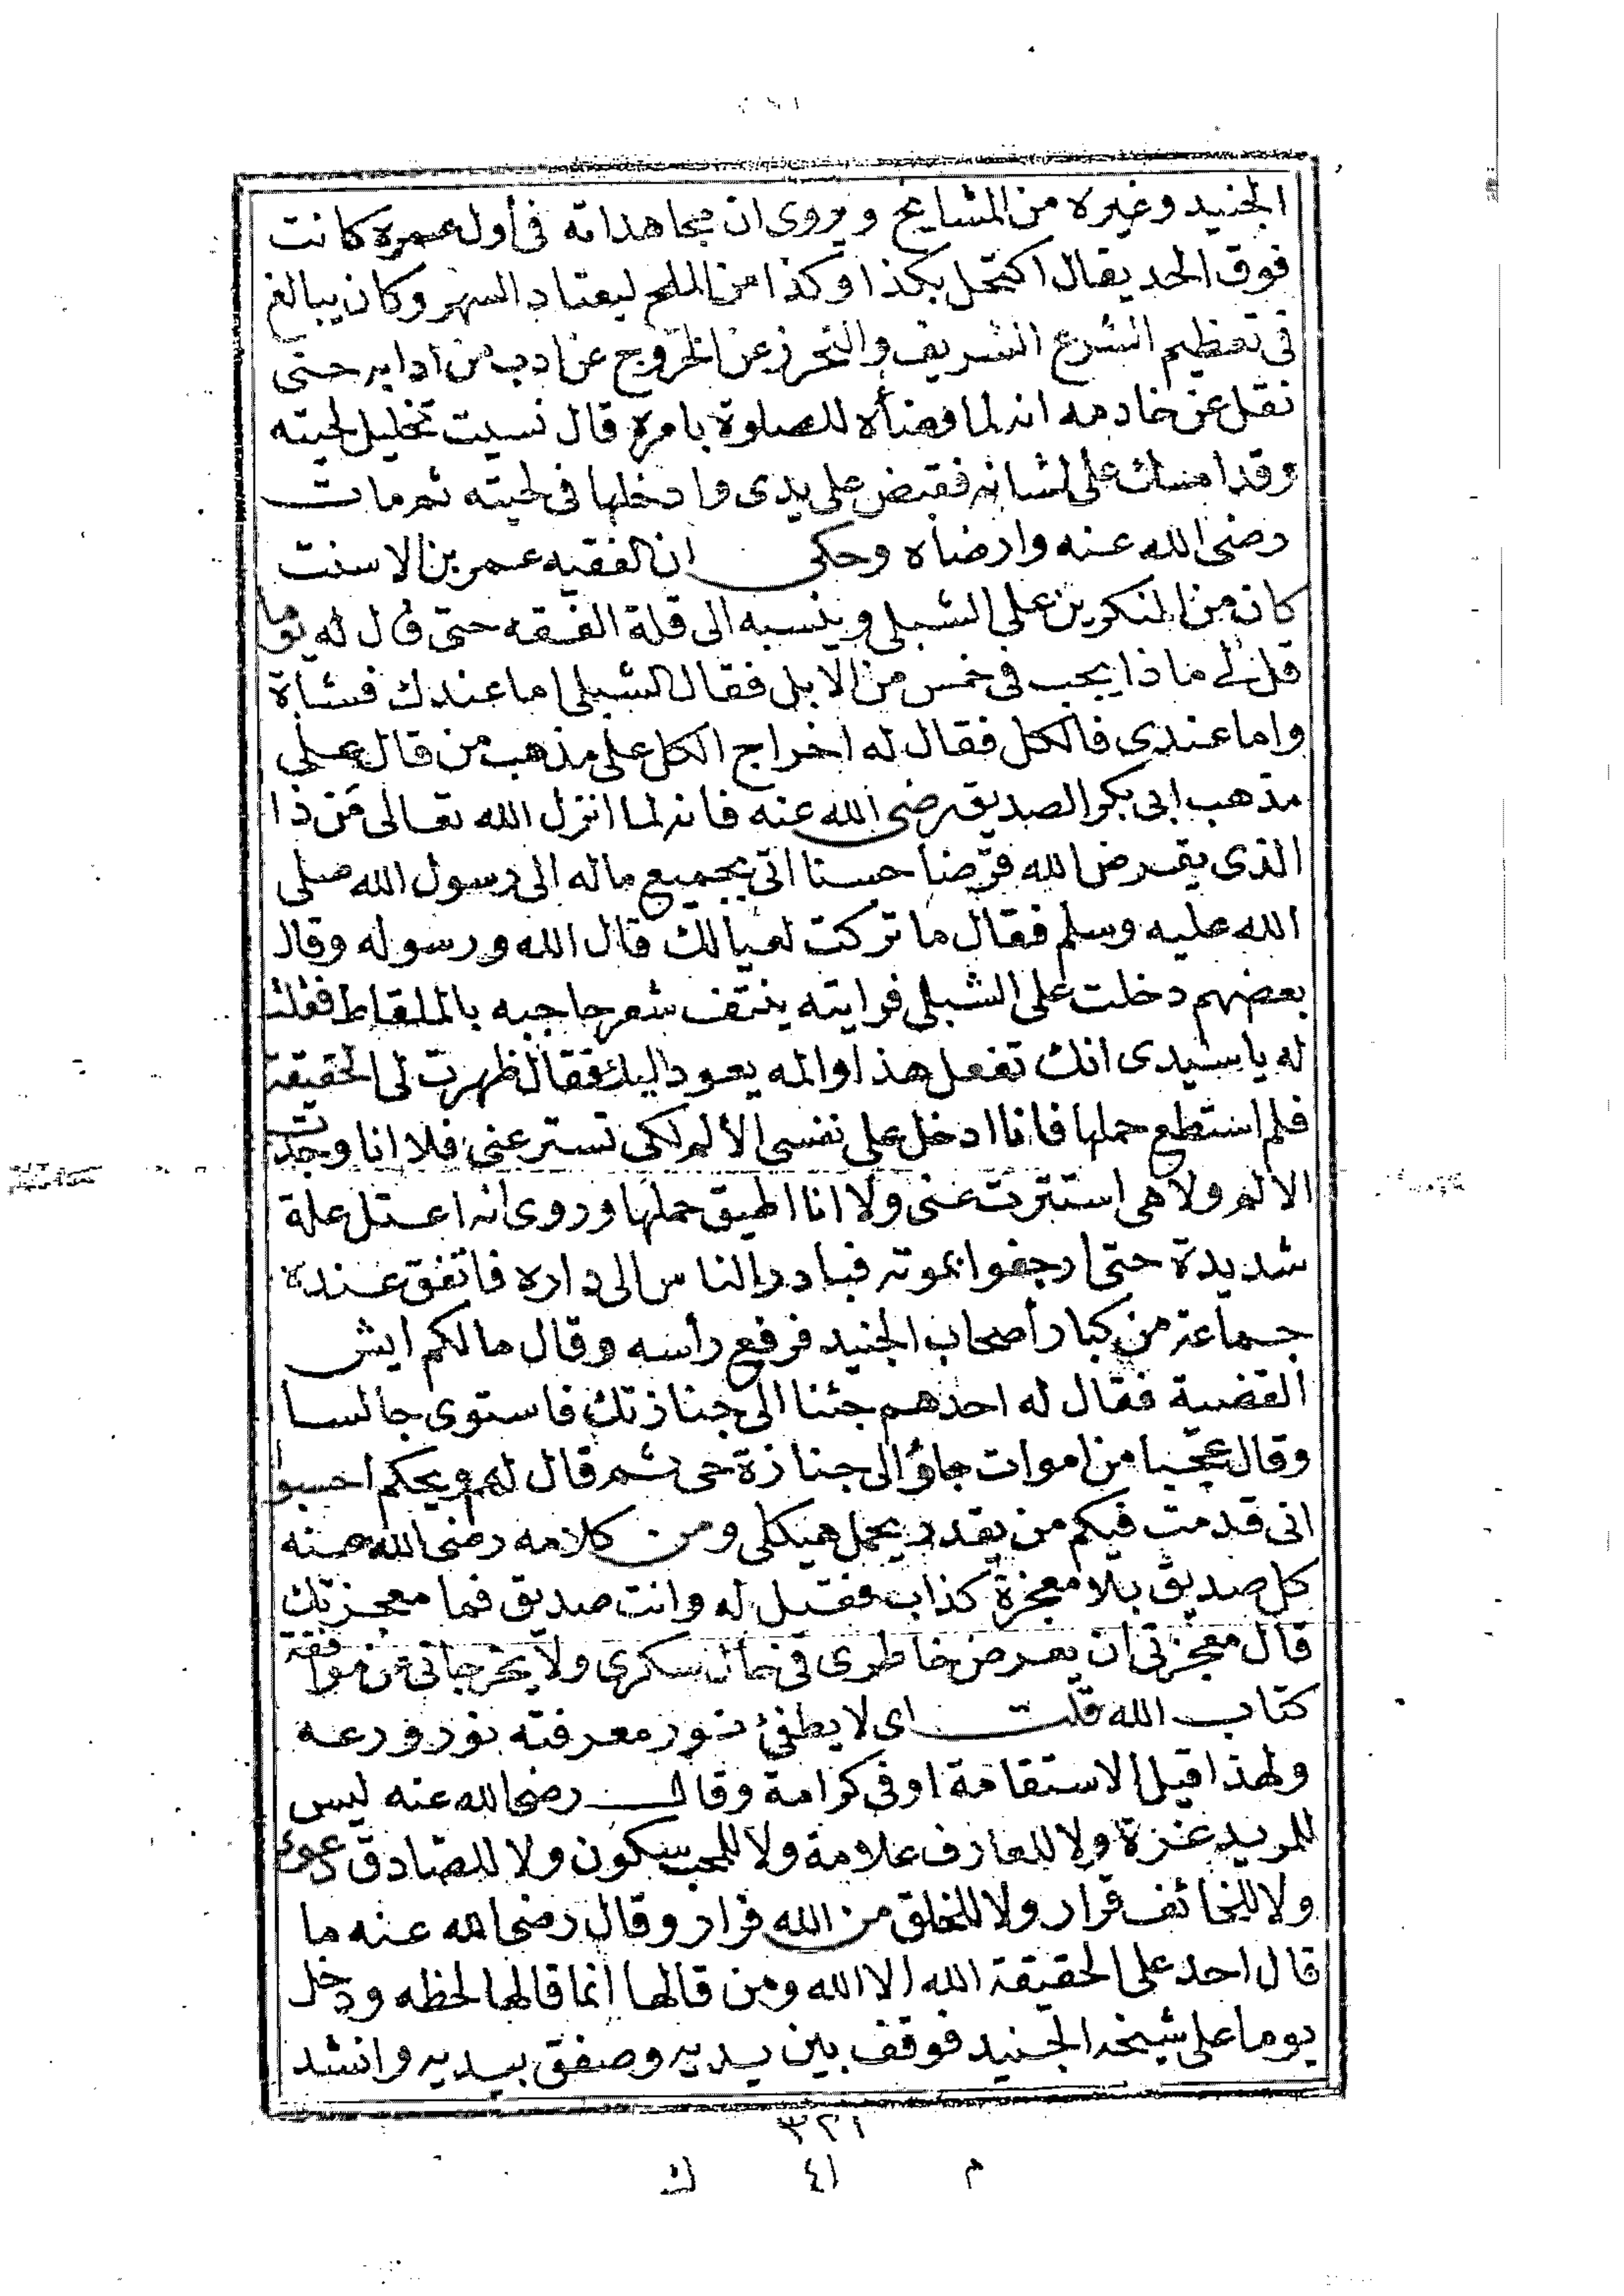 الجنيد وغيره من المشايخ ويروى ان مجاهداته فى أول عمره كانت
فوق الحد يقال اكتحل بكذا وكذا من الملح ليعتاد السهر وكان يبالغ
فى تعظيم الشرع الشريف والتحرز عن الخروج عن ادب من ادابه حتى
نقل عن خادمه انه لما وضأه للصلوة بامره قال نسيت تخليل لحيته
وقد امسك على لسانه فقبض على يدى وادخلها فى لحيته ثم مات
رضى الله عنه وارضاه وحكى ان الفقيه عمر بن الاسنت
كان من المنكرين على الشبلى وينسبه الى قلة الفقه حتى قال له يوما
قل لى ماذا يجب فى خمس من الابل فقال الشبلى اما عندك فشاة
واما عندى فالكل فقال له اخراج الكل على مذهب من قال على
مذهب ابى بكر الصديق رضى الله عنه فانه لما انزل الله تعالى من ذا
الذى يقرض الله قرضا حسنا اتى بجميع ماله الى رسول الله صلى
الله عليه وسلم فقال ما تركت لعيالك قال الله ورسوله وقال
بعضهم دخلت على الشبلى فرايته ينتف شعر حاجبه بالملقاط فقلت
له يا سيدى انك تفعل هذا والمه يعود اليك فقال ظهرت لى الحقيقة
فلم استطع حملها فانا ادخل على نفسى الألم لكى تستر عنى فلا انا وجدت
الالم ولا هى استترت عنى ولا انا اطيق حملها وروى انه اعتل علة
شديدة حتى ارجفوا بموته فبادر الناس الى داره فاتفق عنده
جماعة من كبار أصحاب الجنيد فرفع رأسه وقال مالكم ايش
القضية فقال له احدهم جئنا الى جنازتك فاستوى جالسا
وقال عجبا من اموات جاؤا الى جنازة حى ثم قال لهم ويحكم احسبوا
انى قدمت فيكم من يقدر يحمل هيكلى ومن كلامه رضى الله عنه
كل صديق بلا معجزة كذاب فقيل له وانت صديق فما معجزتك
قال معجزتى ان يعرض خاطرى فى حال سكرى ولا يخرجانى من موافقة
كتاب الله قلت اى لا يطفئ نور معرفته نور ورعه
ولهذا قيل الاستقامة اوفى كرامة وقال رضى الله عنه ليس
للمريد غزة ولا للعارف علامة ولا للمحب سكون ولا للصادق دعوى
ولا للخائف قرار ولا للخلق من الله فرار وقال رضى الله عنه ما
قال احد على الحقيقة الله الا الله ومن قالها انما قالها لحظه ودخل
يوما على شيخه الجنيد فوقف بين يديه وصفق بيديه وانشد
٣٢١
م ٤١ ك